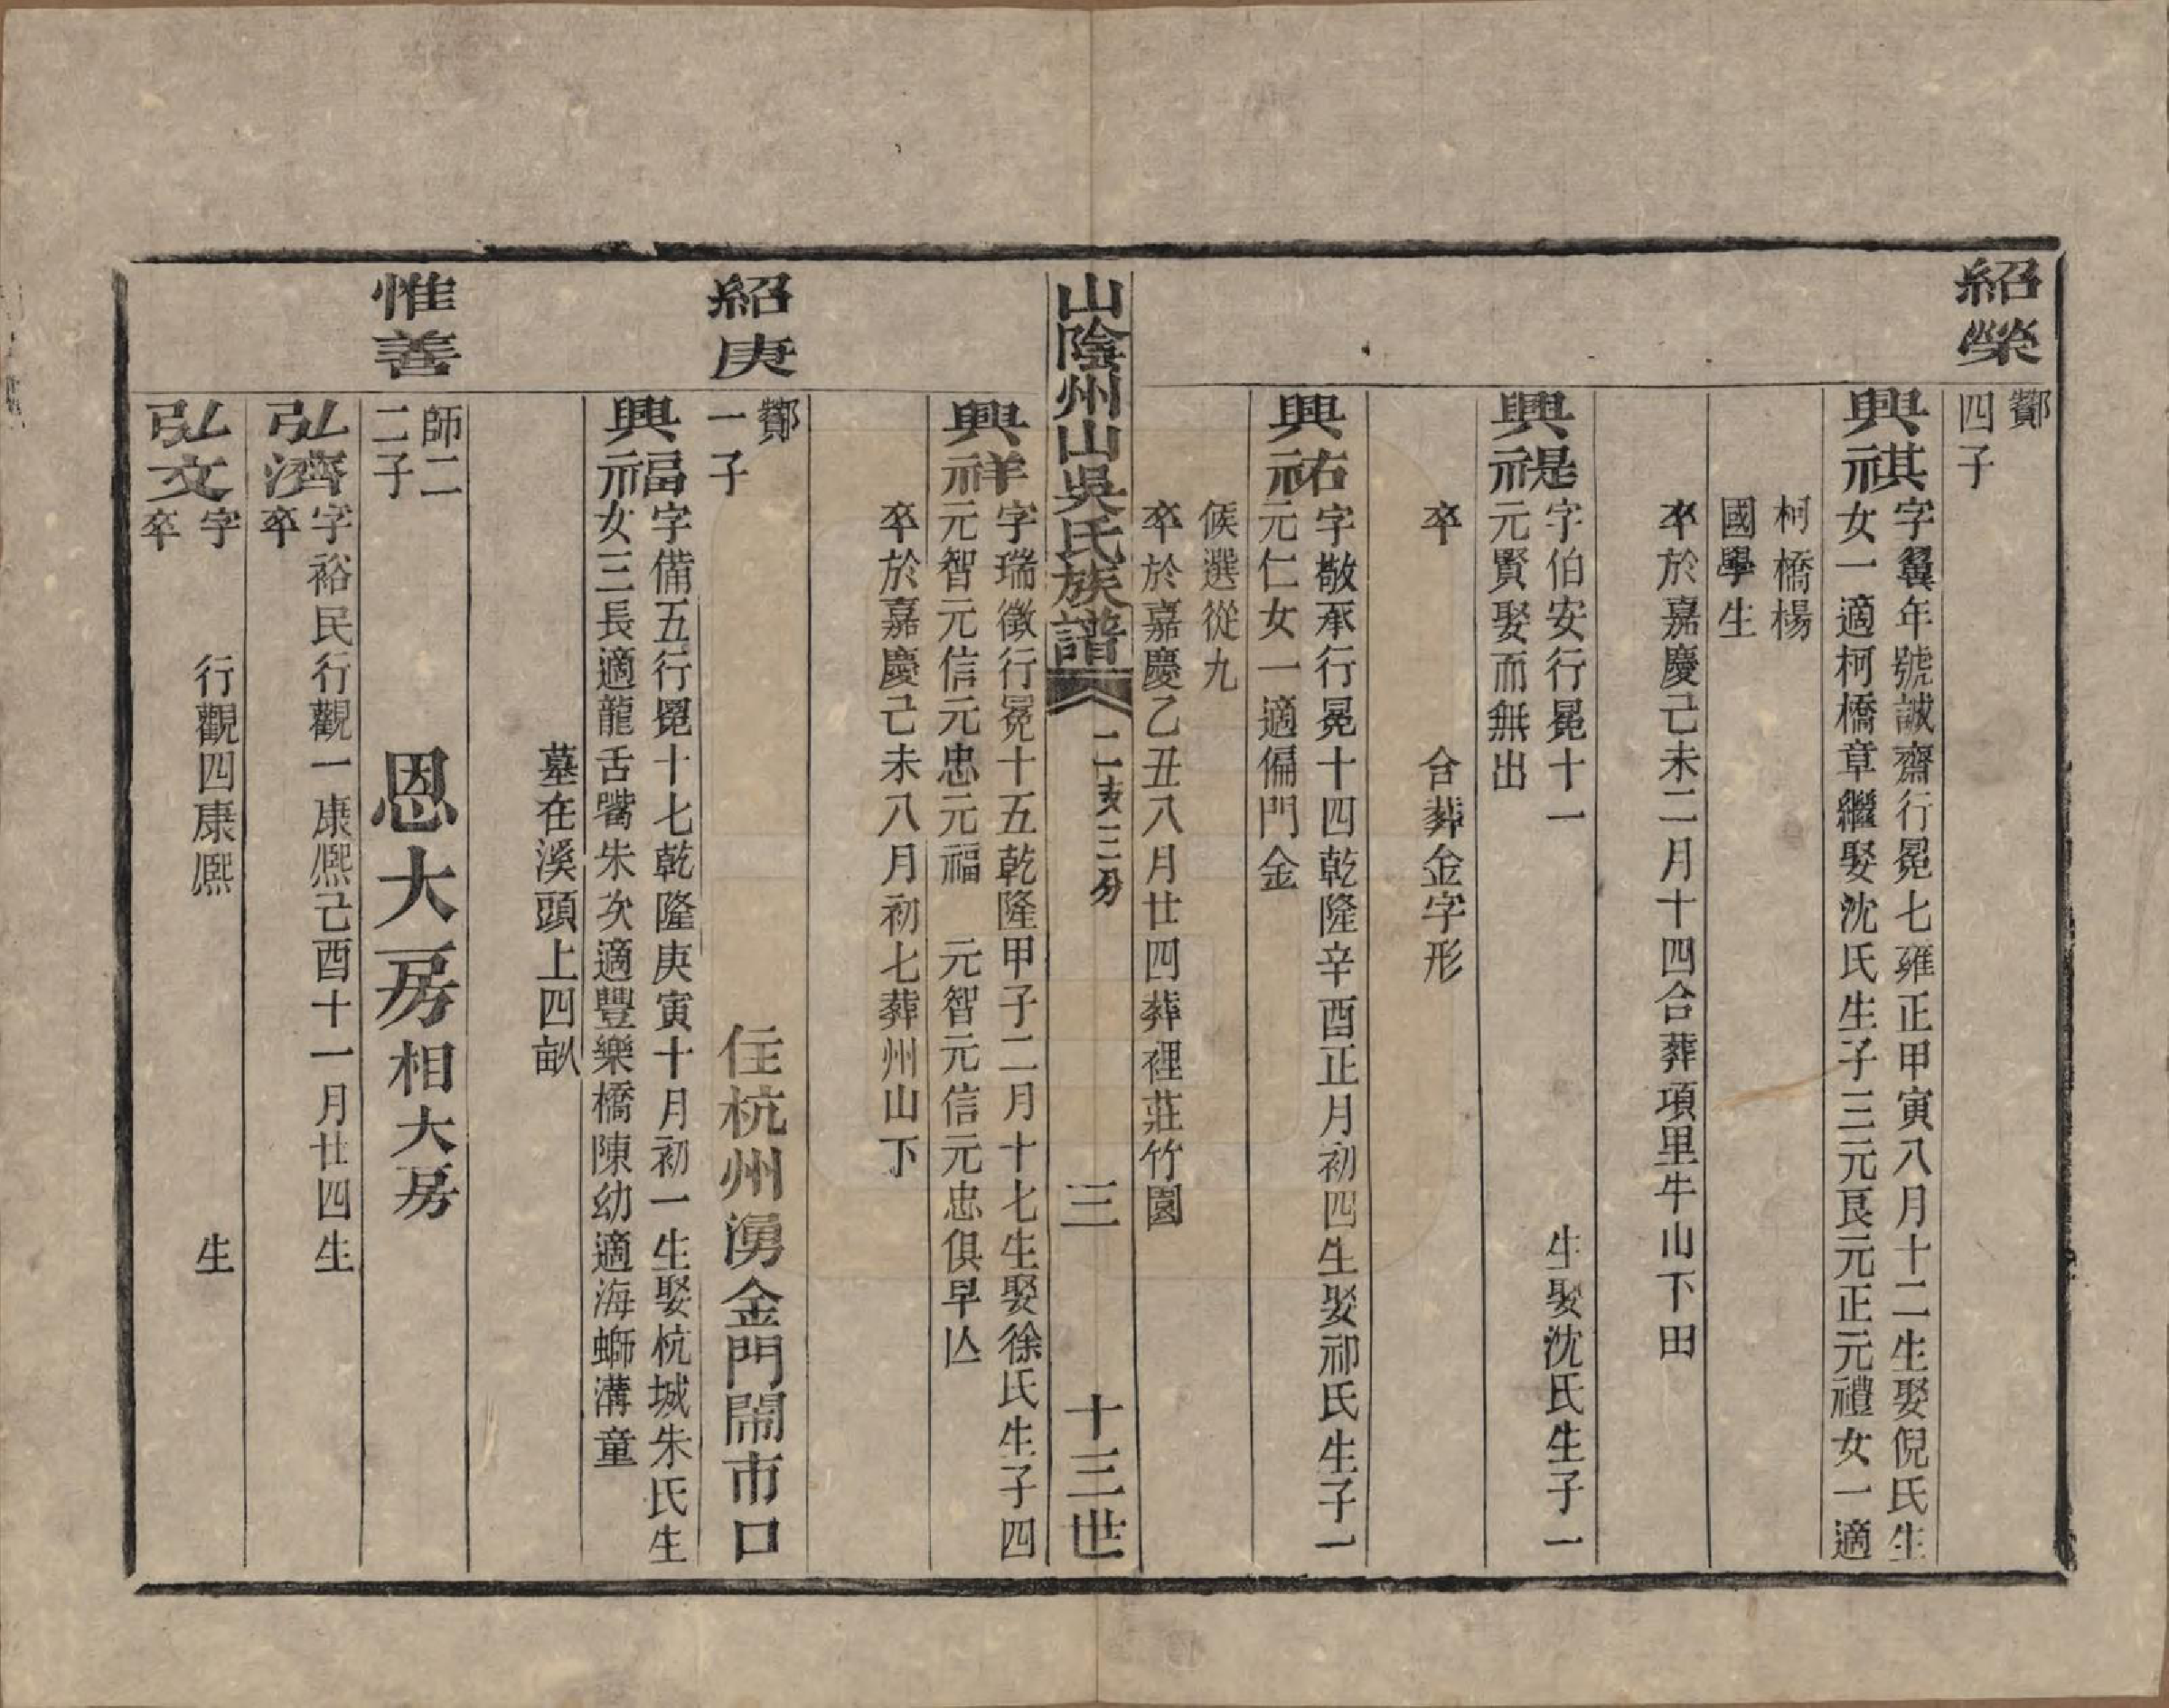 紹榮
酇
四子
興祺
字翼年號誠齋行冕七雍正甲寅八月十二生娶倪氏生
女一適柯橋章繼娶沈氏生子三元良元正元禮女一適
柯橋楊
國學生
卒於嘉慶己未二月十四合葬項里牛山下田
興禔
字伯安行冕十一 生娶沈氏生子一
元賢娶而無出
卒 合葬金字形
興祐
字敬承行冕十四乾隆辛酉正月初四生娶祁氏生子一
元仁女一適偏門金
候選從九
卒於嘉慶乙丑八月廿四葬裡莊竹園
山陰州山吳氏族譜 二支三分 三 十三世
興祥
字瑞徵行冕十五乾隆甲子二月十七生娶徐氏生子四
元智元信元忠元福 元智元信元忠俱早亾
卒於嘉慶己未八月初七葬州山下
紹庚
酇
一子
住杭州湧金門鬧市口
興福
字備五行冕十七乾隆庚寅十月初一生娶杭城朱氏生
女三長適龍舌嘴朱次適豐樂橋陳幼適海螄溝童
墓在溪頭上四畝
惟善
師二
二子
恩大房相大房
弘濟
字裕民行觀一康熙己酉十一月廿四生
卒
弘文
字 行觀四康熙 生
卒